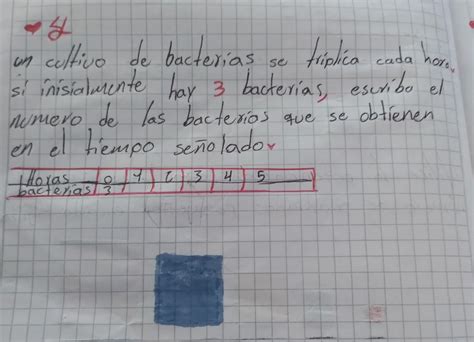 y
un cultivo de bacterias se triplica cada hora,
si inisialmente hay 3 bacterias, escribo el
numero de las bacterias que se obtienen
en el tiempo señolado
Horas 0 1 2 3 4 5
bacterias 3